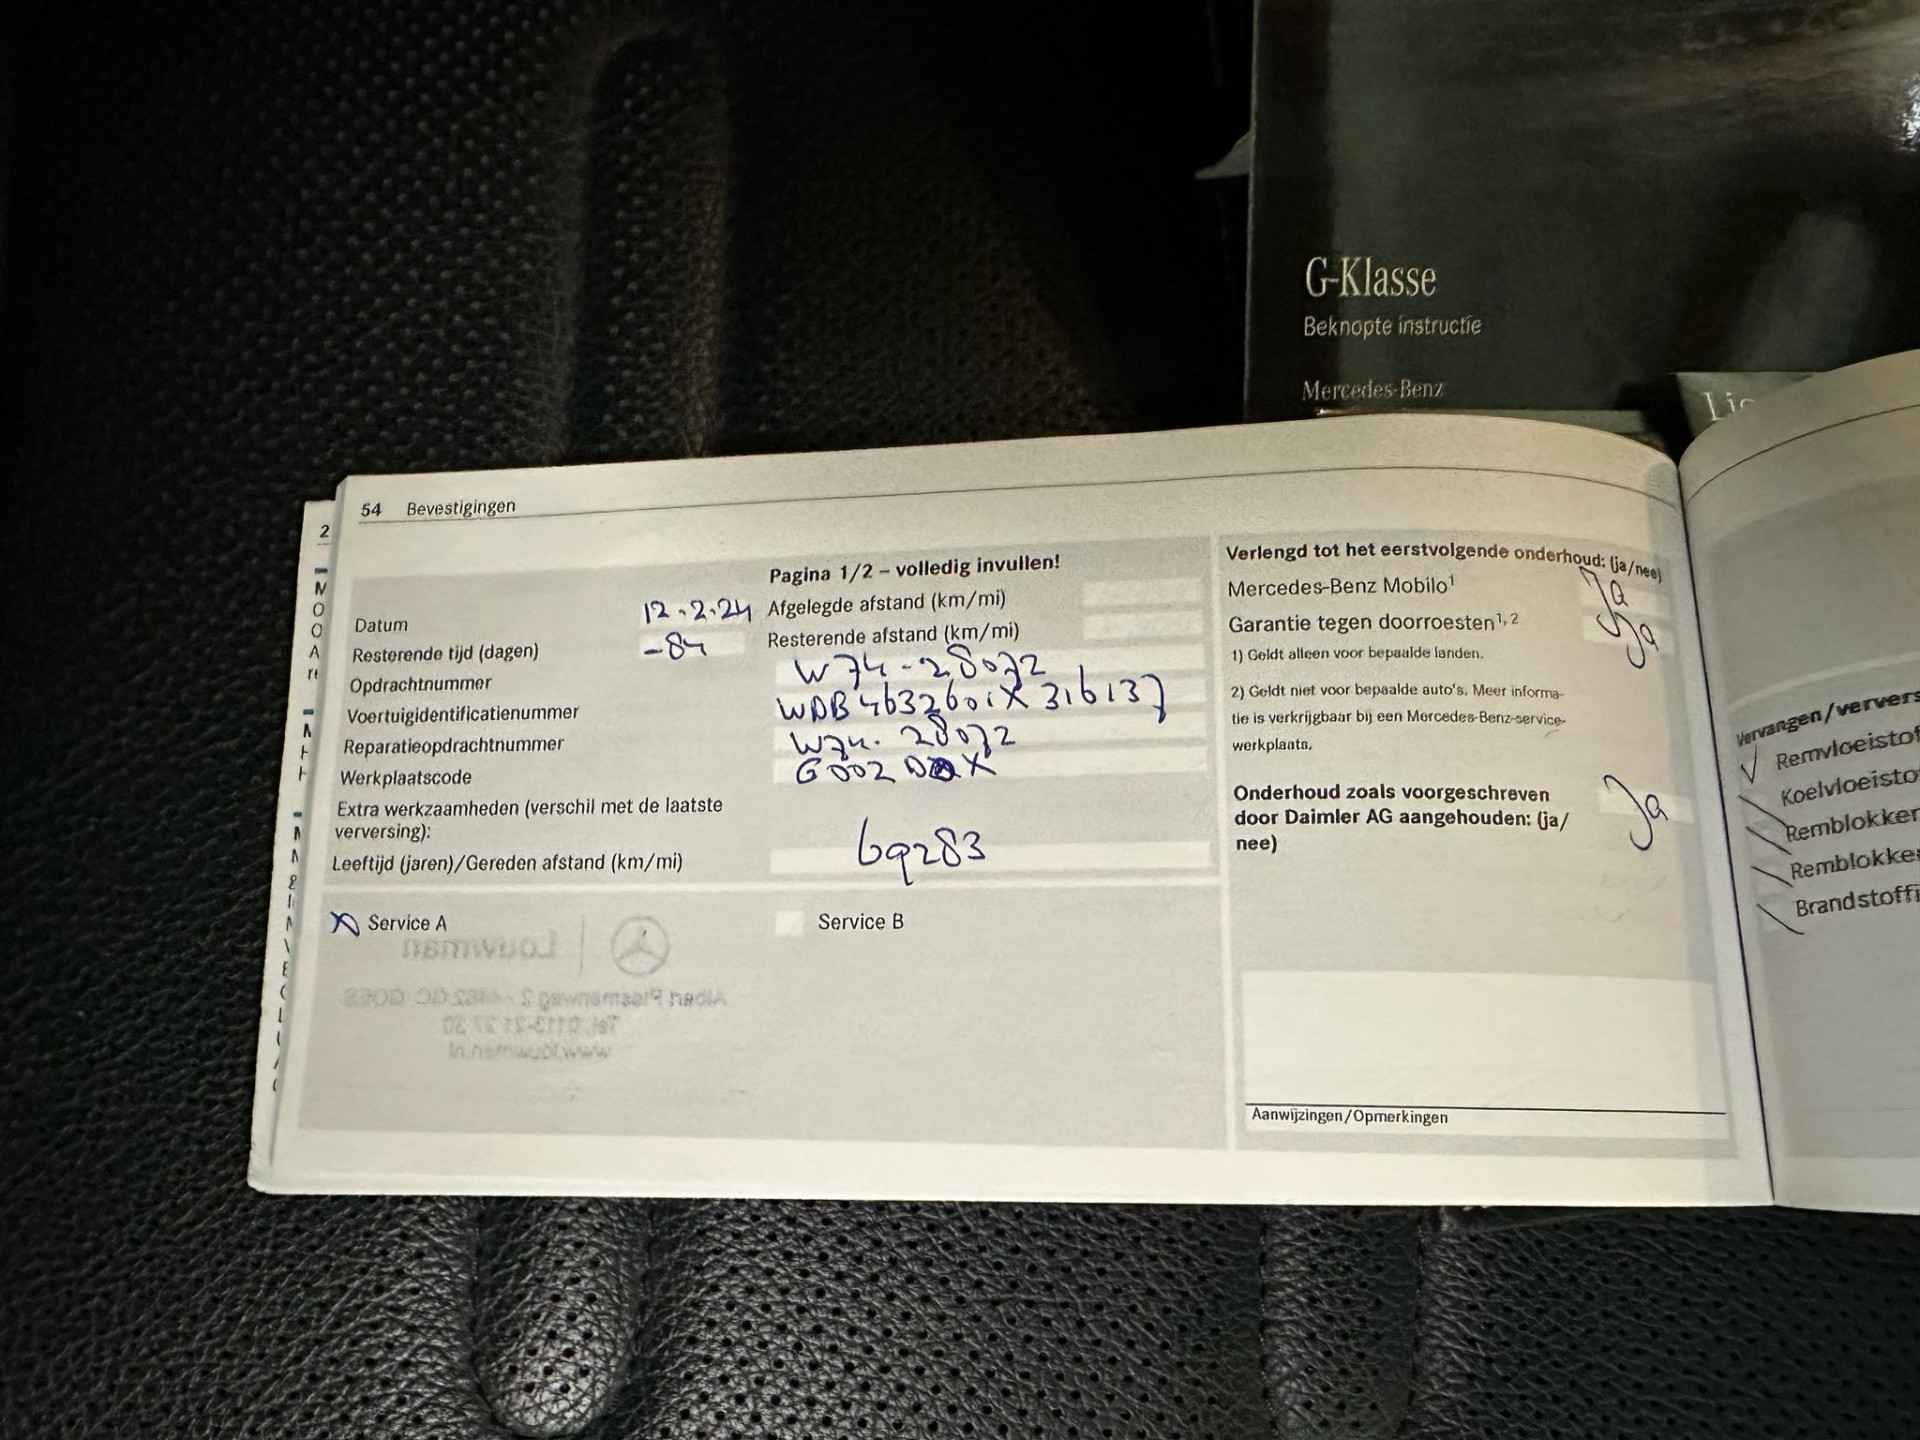 G-Klasse
Beknopte instructie
Mercedes-Benz
54 Bevestigingen
Pagina 1/2 – volledig invullen!
Datum 12.2.24 Afgelegde afstand (km/mi)
Resterende tijd (dagen) -84 Resterende afstand (km/mi)
Opdrachtnummer W74-28072
Voertuigidentificatienummer WDB4632601X316137
Reparatieopdrachtnummer W74.28072
Werkplaatscode
Extra werkzaamheden (verschil met de laatste
verversing):
Leeftijd (jaren)/Gereden afstand (km/mi) 69283
Service A
Service B
Louwman
Albert Plesmanweg 2 - 4462 GC GOES
Tel. 0113-21 27 30
www.louwman.nl
Verlengd tot het eerstvolgende onderhoud: (ja/nee)
Mercedes-Benz Mobilo1 Ja
Garantie tegen doorroesten1, 2 Ja
1) Geldt alleen voor bepaalde landen.
2) Geldt niet voor bepaalde auto's. Meer informa-
tie is verkrijgbaar bij een Mercedes-Benz-service-
werkplaats.
Onderhoud zoals voorgeschreven
door Daimler AG aangehouden: (ja/
nee) Ja
Aanwijzingen/Opmerkingen
Vervangen/ververs
Remvloeistof
Koelvloeisto
Remblokker
Remblokke
Brandstoffi